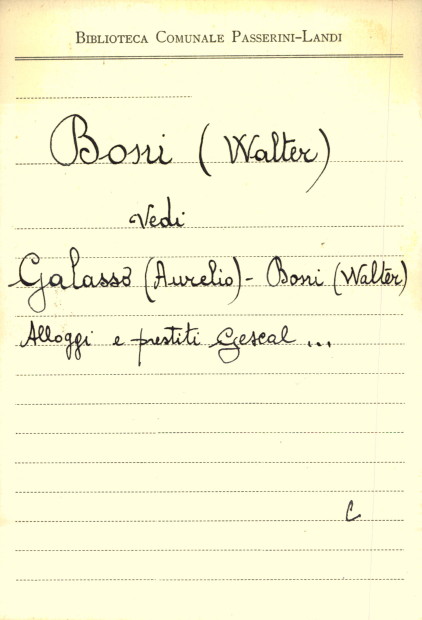 BIBLIOTECA COMUNALE PASSERINI-LANDI
Boni (Walter)
Vedi
Galasso (Aurelio) - Boni (Walter)
Alloggi e prestiti Gescal ...
C